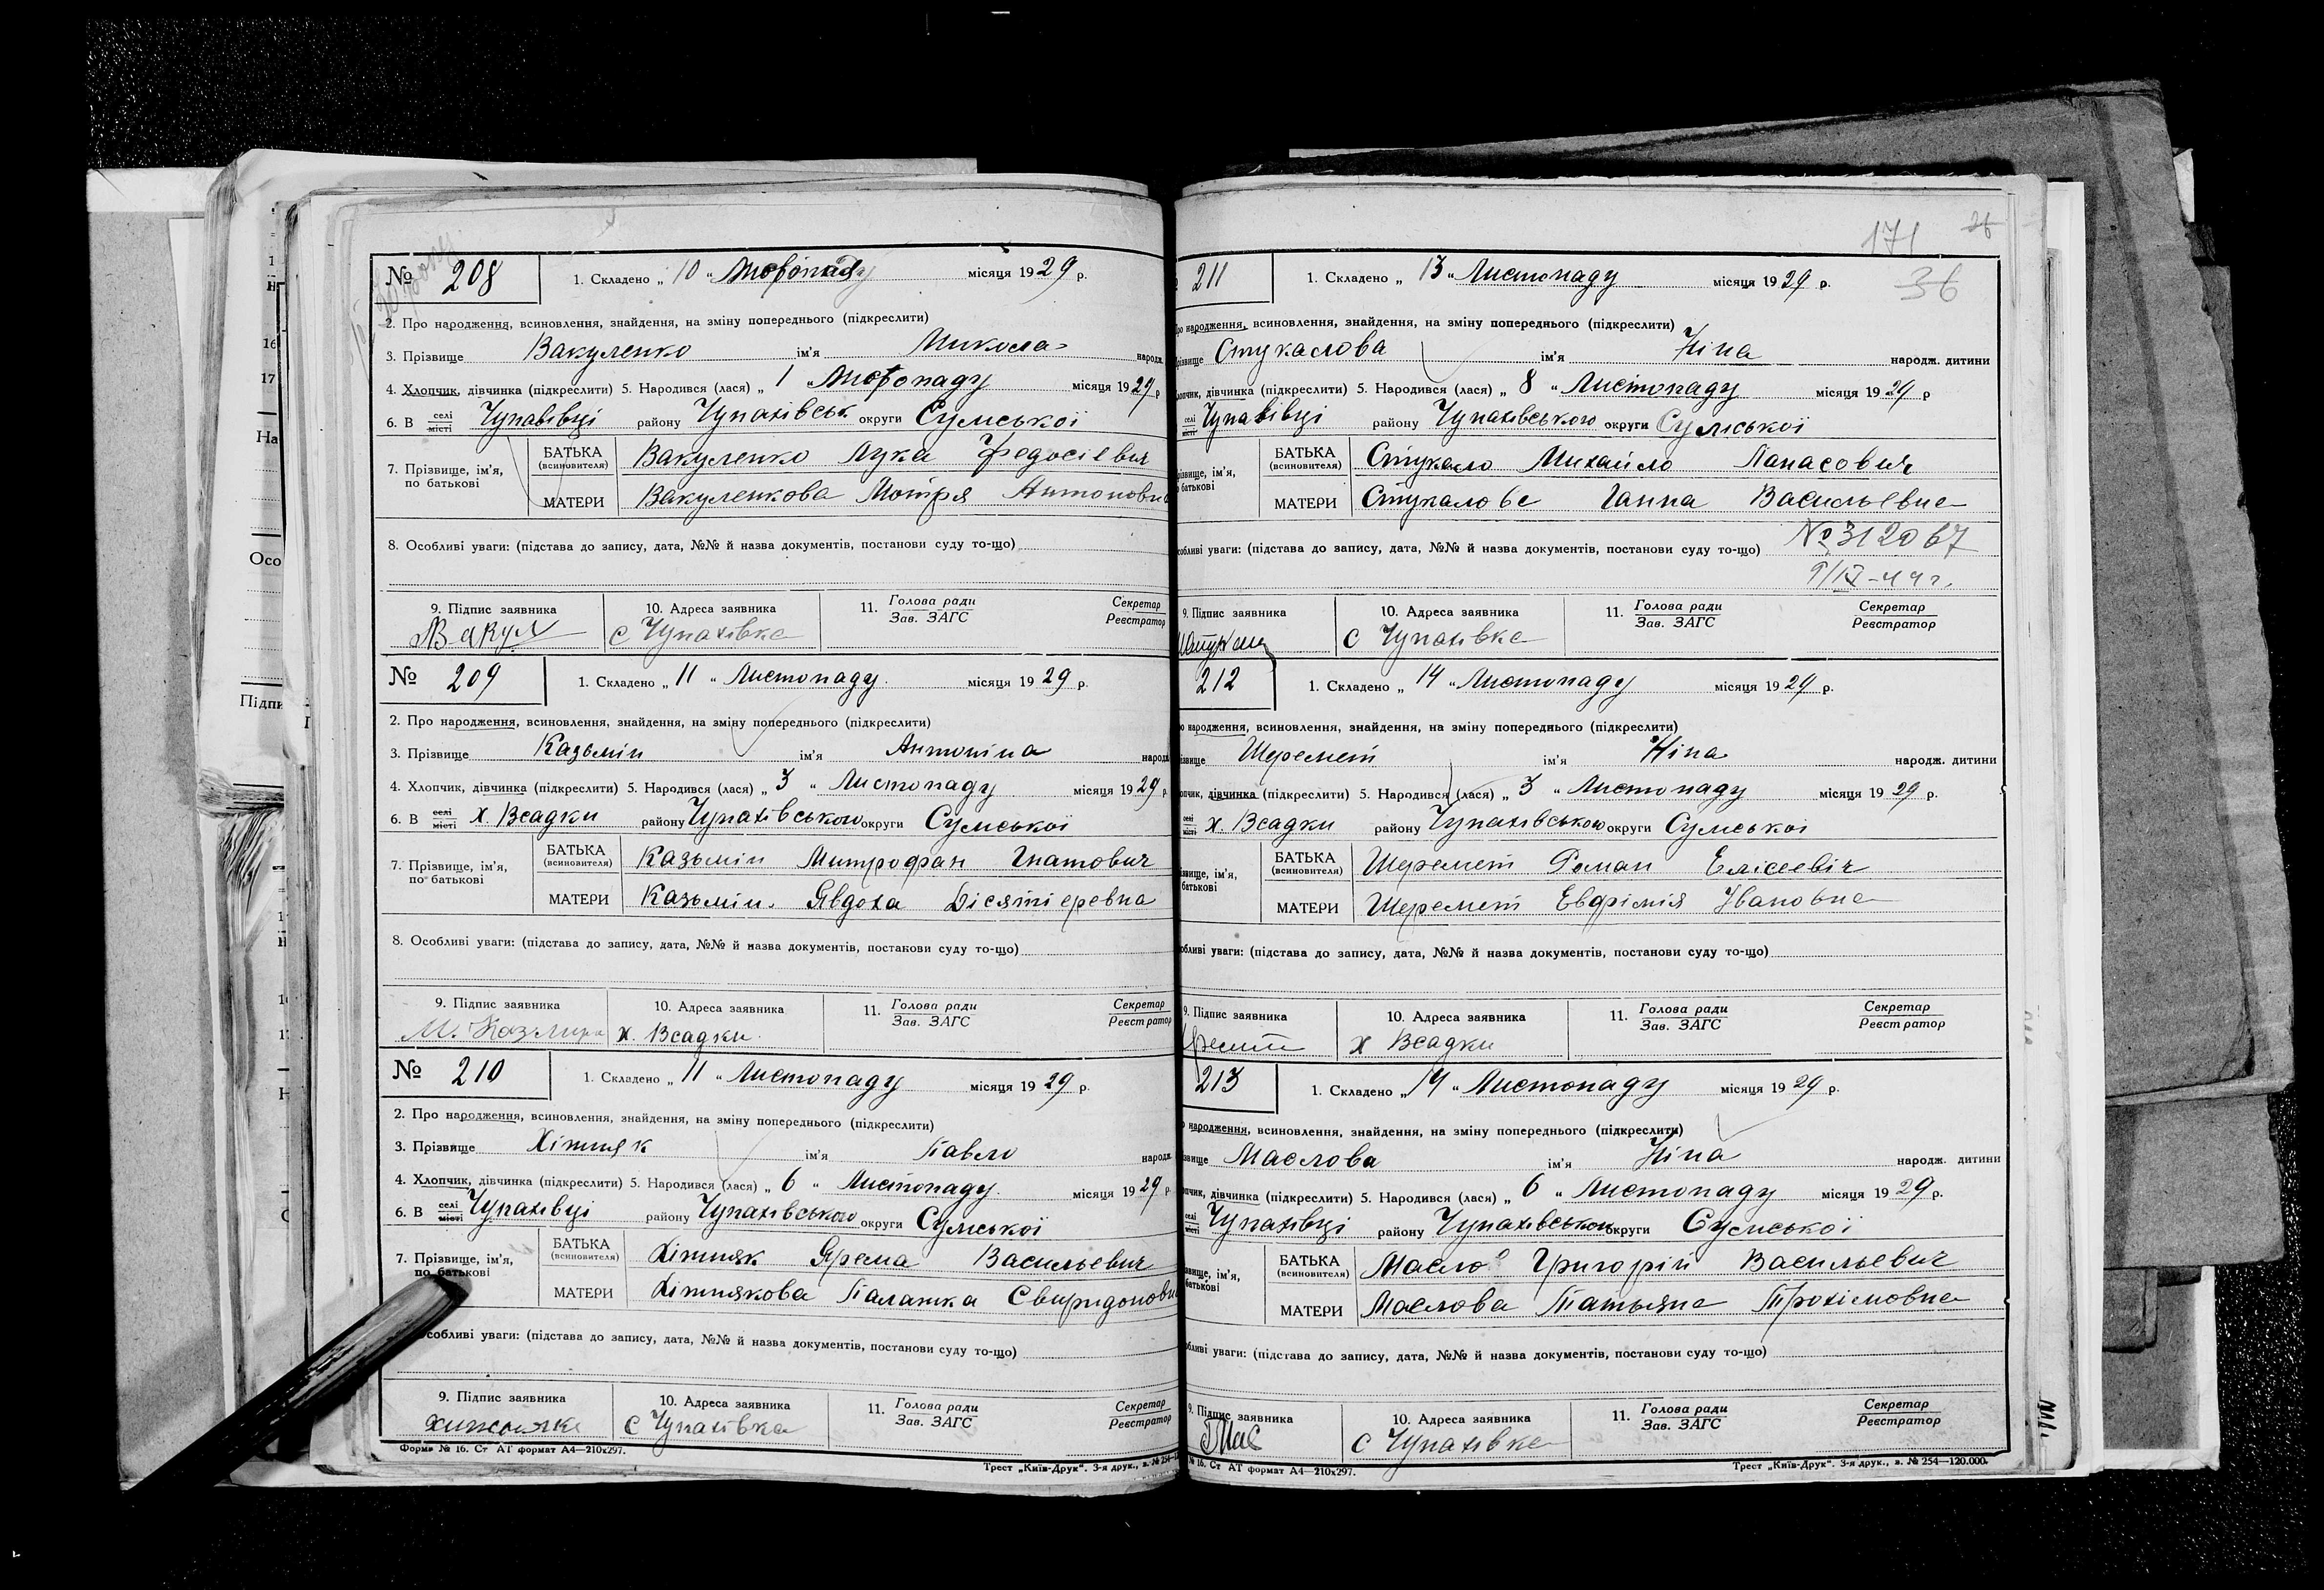 № 208 1. Складено „ 10 “ Листопаду місяця 1929 р.
2. Про народження, всиновлення, знайдення, на зміну попереднього (підкреслити)
3. Прізвище Вакуленко ім'я Микола народж.
4. Хлопчик, дівчинка (підкреслити) 5. Народився (лася) „ 1 “ Листопаду місяця 1929 р
6. В селі місті Чупахівці району Чупахівськ округи Сумської
7. Прізвище, ім'я, по батькові
БАТЬКА (всиновителя) Вакуленко Лука Федосієвич
МАТЕРИ Вакуленкова Мотря Антоновн
8. Особливі уваги: (підстава до запису, дата, №№ й назва документів, постанови суду то-що)
9. Підпис заявника 10. Адреса заявника 11. Голова ради Зав. ЗАГС Секретар Реєстратор
Вакул с Чупахівка
№ 209 1. Складено „ 11 “ Листопаду місяця 1929 р.
2. Про народження, всиновлення, знайдення, на зміну попереднього (підкреслити)
3. Прізвище Казьмін ім'я Антоніна народж
4. Хлопчик, дівчинка (підкреслити) 5. Народився (лася) „ 3 “ Листопаду місяця 1929 р
6. В селі місті х. Всадки району Чупахівського округи Сумської
7. Прізвище, ім'я, по батькові
БАТЬКА (всиновителя) Казьмін Митрофан Гнатович
МАТЕРИ Казьмін Явдоха
8. Особливі уваги: (підстава до запису, дата, №№ й назва документів, постанови суду то-що)
9. Підпис заявника 10. Адреса заявника 11. Голова ради Зав. ЗАГС Секретар Реєстратор
х. Всадки
№ 210 1. Складено „ 11 “ Листопаду місяця 1929 р.
2. Про народження, всиновлення, знайдення, на зміну попереднього (підкреслити)
3. Прізвище Хіжняк ім'я Павло народж
4. Хлопчик, дівчинка (підкреслити) 5. Народився (лася) „ 6 “ Листопаду місяця 1929 р
6. В селі місті Чупахівці району Чупахівського округи Сумської
7. Прізвище, ім'я, по батькові
БАТЬКА (всиновителя) Хіжняк Ярема Васильевич
МАТЕРИ Хіжнякова Палажка Свиридоновн
Особливі уваги: (підстава до запису, дата, №№ й назва документів, постанови суду то-що)
9. Підпис заявника 10. Адреса заявника 11. Голова ради Зав. ЗАГС Секретар Реєстратор
с Чупахівка
Форма № 16. Ст АТ формат А4—210х297.
Трест „Київ-Друк“. 3-я друк., з. № 254—
171 36
211 1. Складено „ 13 “ Листопаду місяця 1929 р.
народження, всиновлення, знайдення, на зміну попереднього (підкреслити)
Стукалова ім'я Ніна народж. дитини
дівчинка (підкреслити) 5. Народився (лася) „ 8 “ Листопаду місяця 1929 р
Чупахівці району Чупахівського округи Сумської
БАТЬКА (всиновителя) Стукало Михайло Панасович
МАТЕРИ Стукалова Ганна Васильевна
уваги: (підстава до запису, дата, №№ й назва документів, постанови суду то-що) № 312067
9/IX-44 г.
9. Підпис заявника 10. Адреса заявника 11. Голова ради Зав. ЗАГС Секретар Реєстратор
с Чупахівка
212 1. Складено „ 14 “ Листопаду місяця 1929 р.
народження, всиновлення, знайдення, на зміну попереднього (підкреслити)
Шеремет ім'я Ніна народж. дитини
дівчинка (підкреслити) 5. Народився (лася) „ 3 “ Листопаду місяця 1929 р.
х. Всадки району Чупахівського округи Сумської
БАТЬКА (всиновителя) Шеремет Роман Елісеевіч
МАТЕРИ Шеремет Евфімія Івановна
уваги: (підстава до запису, дата, №№ й назва документів, постанови суду то-що)
9. Підпис заявника 10. Адреса заявника 11. Голова ради Зав. ЗАГС Секретар Реєстратор
х Всадки
213 1. Складено „ 14 “ Листопаду місяця 1929 р.
народження, всиновлення, знайдення, на зміну попереднього (підкреслити)
Маслова ім'я Ніна народж. дитини
дівчинка (підкреслити) 5. Народився (лася) „ 6 “ Листопаду місяця 1929 р.
Чупахівці району Чупахівського округи Сумської
БАТЬКА (всиновителя) Масло Григорій Васильевич
МАТЕРИ Маслова Татьяна Трохімовна
уваги: (підстава до запису, дата, №№ й назва документів, постанови суду то-що)
9. Підпис заявника 10. Адреса заявника 11. Голова ради Зав. ЗАГС Секретар Реєстратор
Мас с Чупахівка
№ 16. Ст АТ формат А4—210х297.
Трест „Київ-Друк“. 3-я друк., з. № 254—120.000.